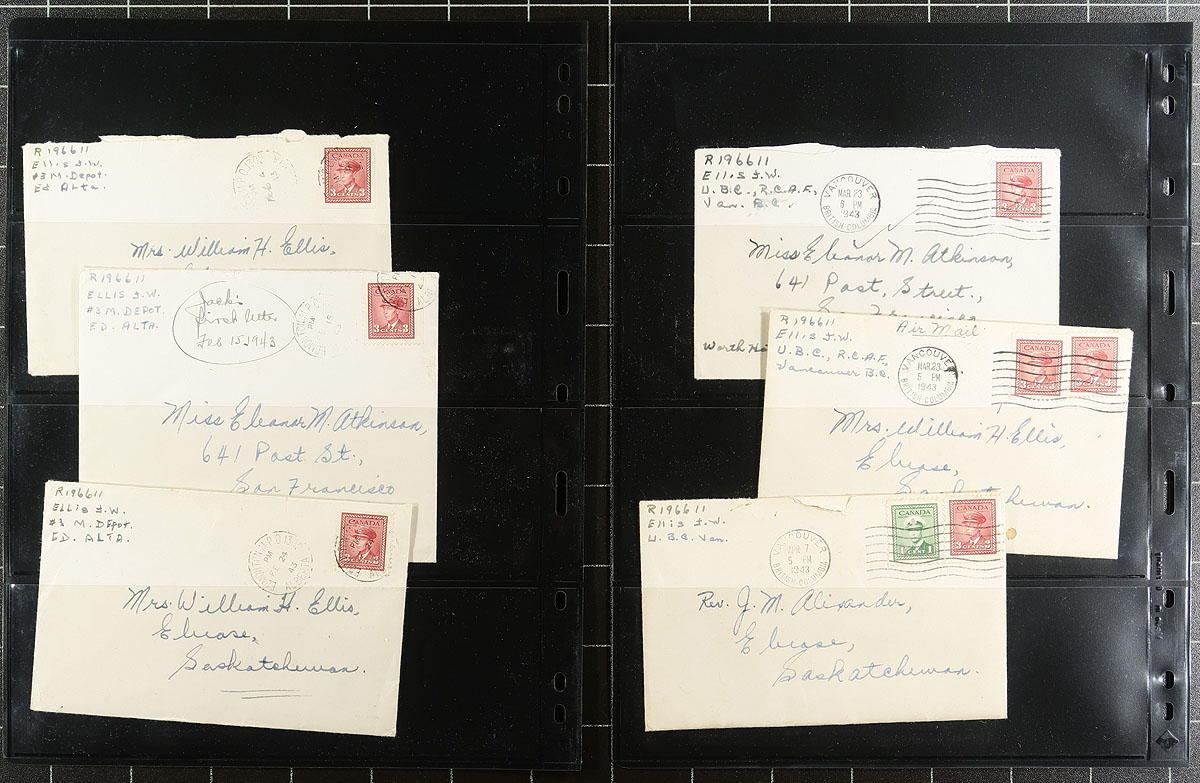 R196611
Ellis J.W.
#3 M. Depot.
Ed Alta.
CANADA
3 CENTS 3
Mrs. William H. Ellis,
R196611
ELLIS J.W.
#3 M. DEPOT.
ED. ALTA.
Jack's
first letter
Feb 15, 1943
CANADA
3 CENTS 3
Miss Eleanor M. Atkinson,
641 Post St.,
San Francisco
R196611
ELLIS J.W.
#3 M. DEPOT.
ED. ALTA.
PM
24
43
CANADA
Mrs. William H. Ellis,
Elrose,
Saskatchewan.
R196611
Ellis J.W.
U.B.C., R.C.A.F.,
Van. B.C.
VANCOUVER
MAR 23
6 PM
1943
BRITISH COLUMBIA
CANADA
Miss Eleanor M. Atkinson,
641 Post, Street.,
San Francisco
Worth
R196611
Ellis J.W.
U.B.C., R.C.A.F.,
Vancouver B.C.
Air Mail
VANCOUVER
MAR 23
5 PM
1943
BRITISH COLUMBIA
CANADA
CANADA
Mrs. William H. Ellis,
Elrose,
Saskatchewan.
R196611
Ellis J.W.
U.B.C. Van.
VANCOUVER
APR 7
5 PM
1943
BRITISH COLUMBIA
CANADA
1 CENT 1
CANADA
3 CENTS 3
Rev. J. M. Alexander,
Elrose,
Saskatchewan.